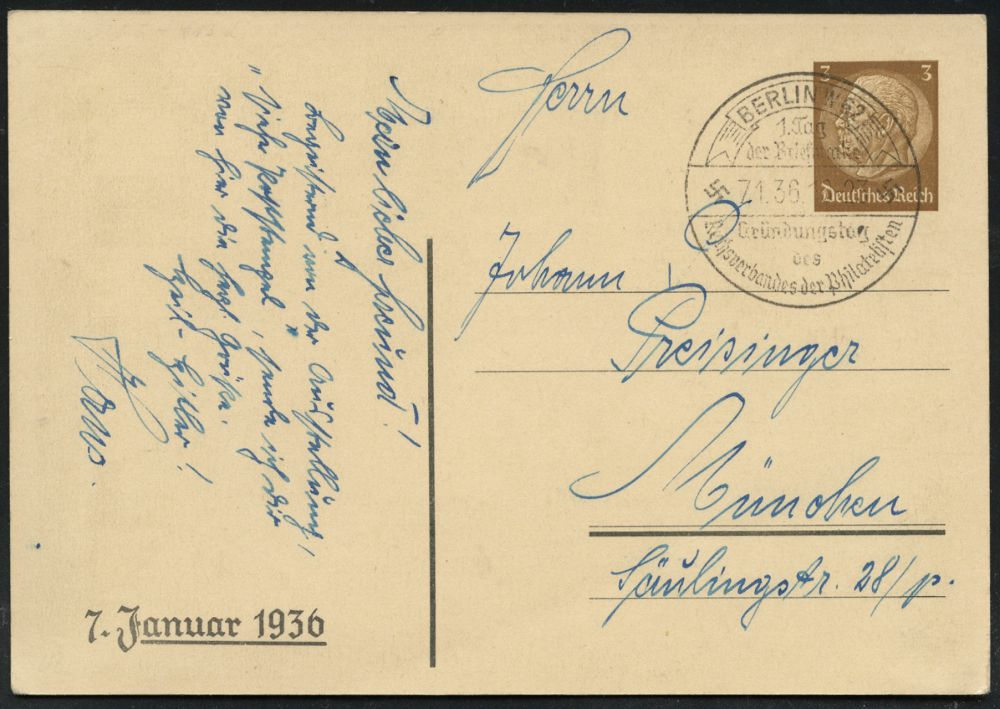 Mein lieber Freund!
Begeistert von der Ausstellung,
sende ich Dir
von hier die herzl. Grüße.
Heil-Hitler!
Hans.
7. Januar 1936
Herrn
Johann
Preisinger
München
Säulingstr. 28/p.
3 3
Deutsches Reich
BERLIN W 62
1. Tag
der Briefmarke
7.1.36.
Gründungstag
des
Reichsverbandes der Philatelisten